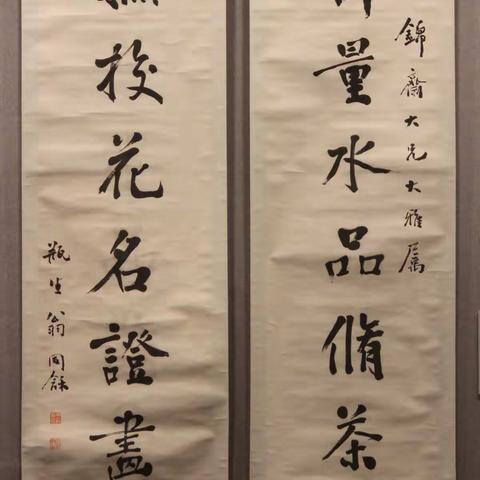 錦齋大兄大雅屬
量水品脩茶
校花名證畫
瓶生翁同龢